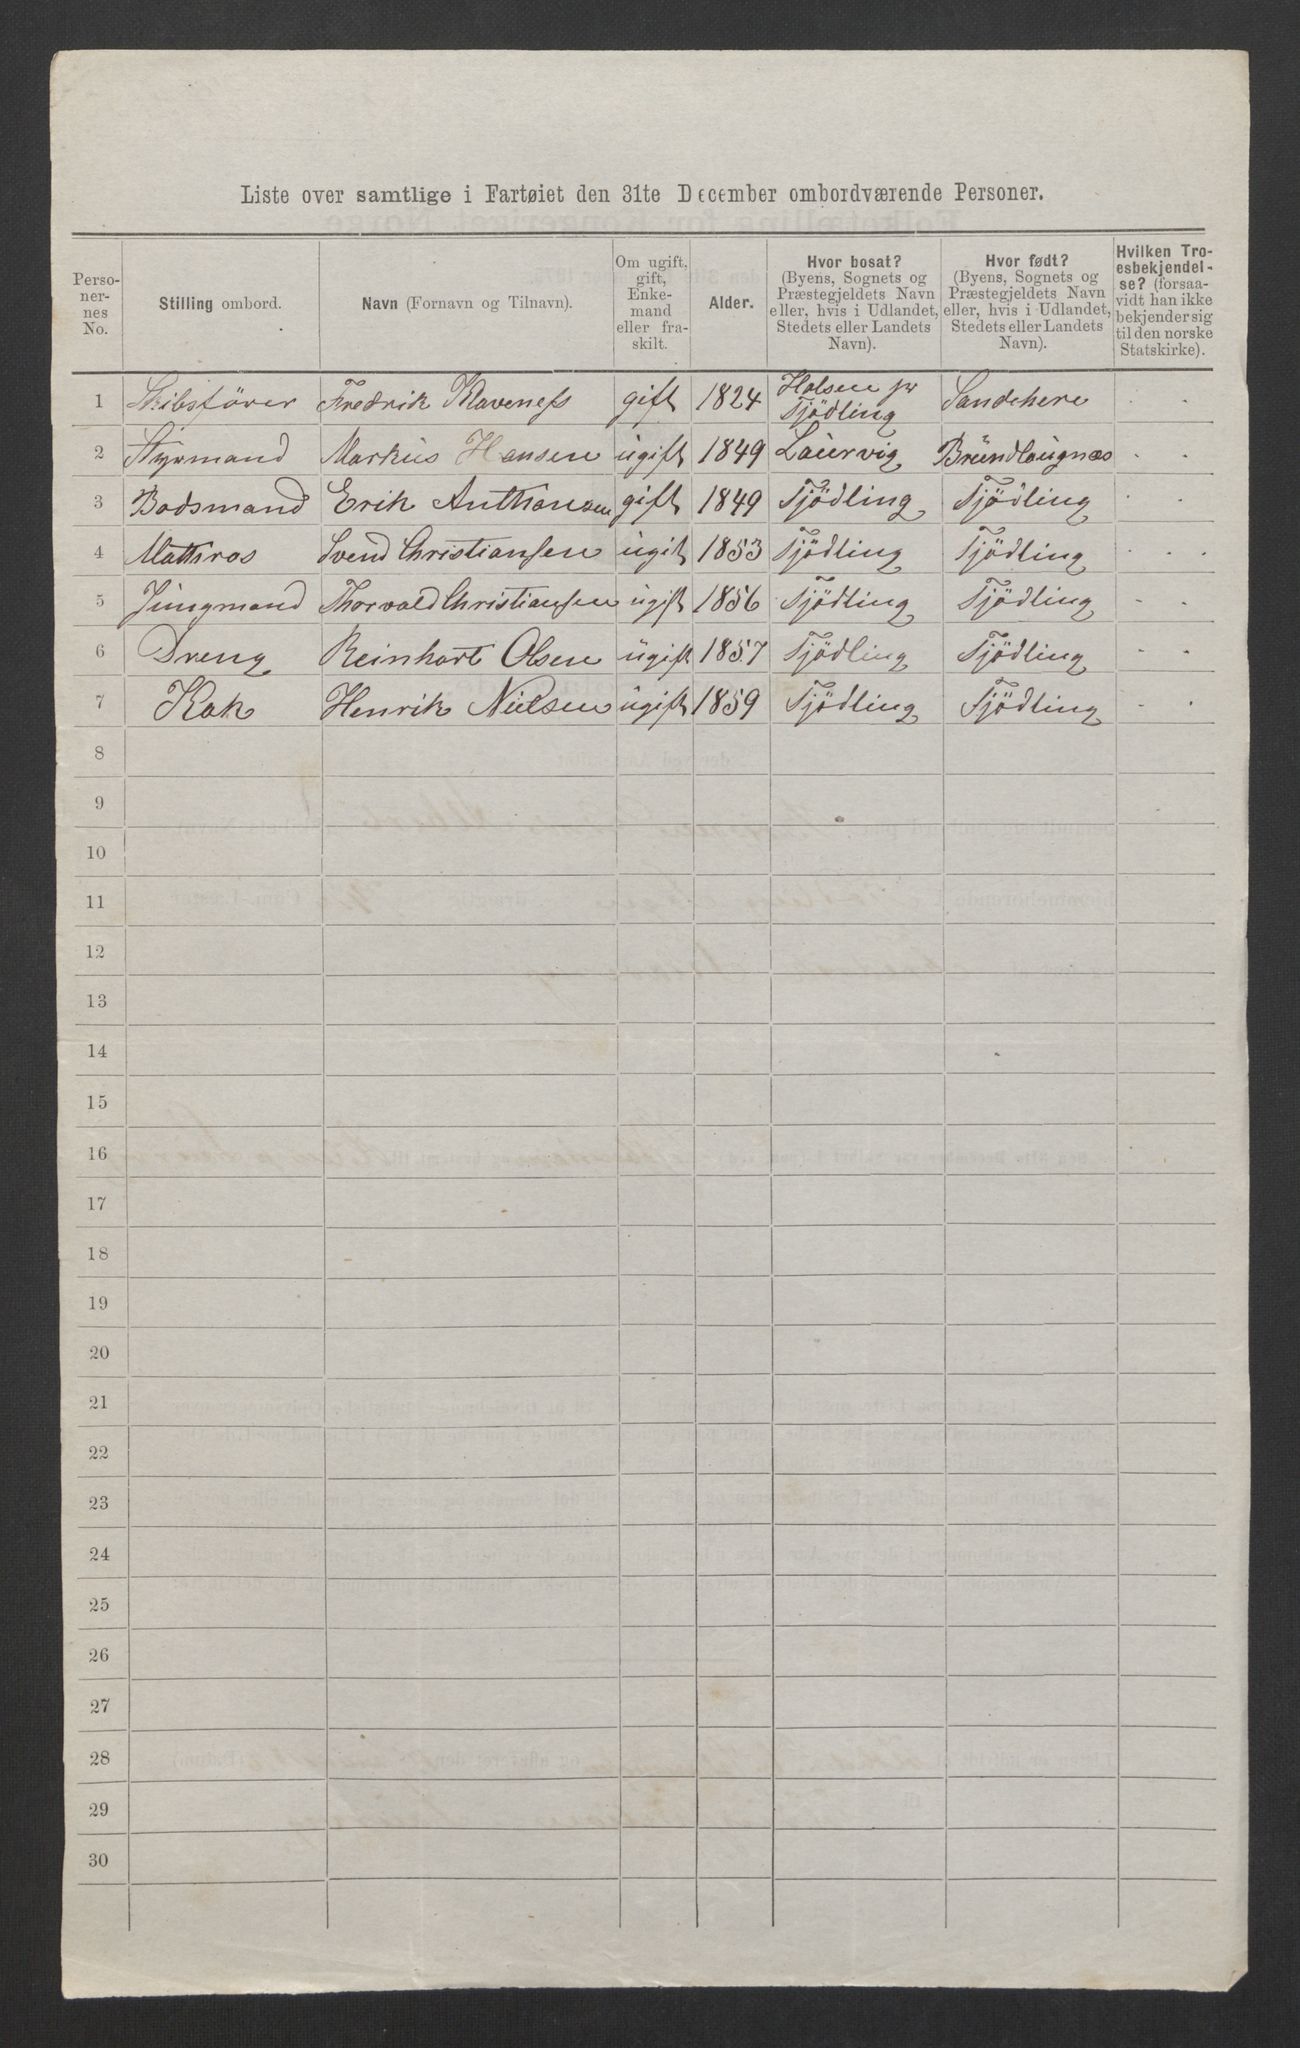 Liste over samtlige i Fartøiet den 31te December ombordværende Personer.
Perso-
ner-
nes
No.
Stilling ombord.
Navn (Fornavn og Tilnavn).
Om ugift,
gift,
Enke-
mand
eller fra-
skilt.
Alder.
Hvor bosat?
(Byens, Sognets og
Præstegjeldets Navn
eller, hvis i Udlandet,
Stedets eller Landets
Navn).
Hvor født?
(Byens, Sognets og
Præstegjeldets Navn
eller, hvis i Udlandet,
Stedets eller Landets
Navn).
Hvilken Tro-
esbekjendel-
se? (forsaa-
vidt han ikke
bekjender sig
til den norske
Statskirke).
1 Skibsförer Fredrik Klaveness gift 1824 Halsen pr Tjödling Sandehere
2 Styrmand Markus Hansen ugift 1849 Laurvig Brundlaugnæs
3 Bodsmand Erik Anthonsen gift 1849 Tjödling Tjödling
4 Mathros Svend Christiansen ugit 1853 Tjödling Tjödling
5 Jungmand Thorvald Christiansen ugift 1856 Tjödling Tjödling
6 Dreng Reinhart Olsen ugift 1857 Tjödling Tjödling
7 Kok Henrik Nielsen ugift 1859 Tjödling Tjödling
8
9
10
11
12
13
14
15
16
17
18
19
20
21
22
23
24
25
26
27
28
29
30